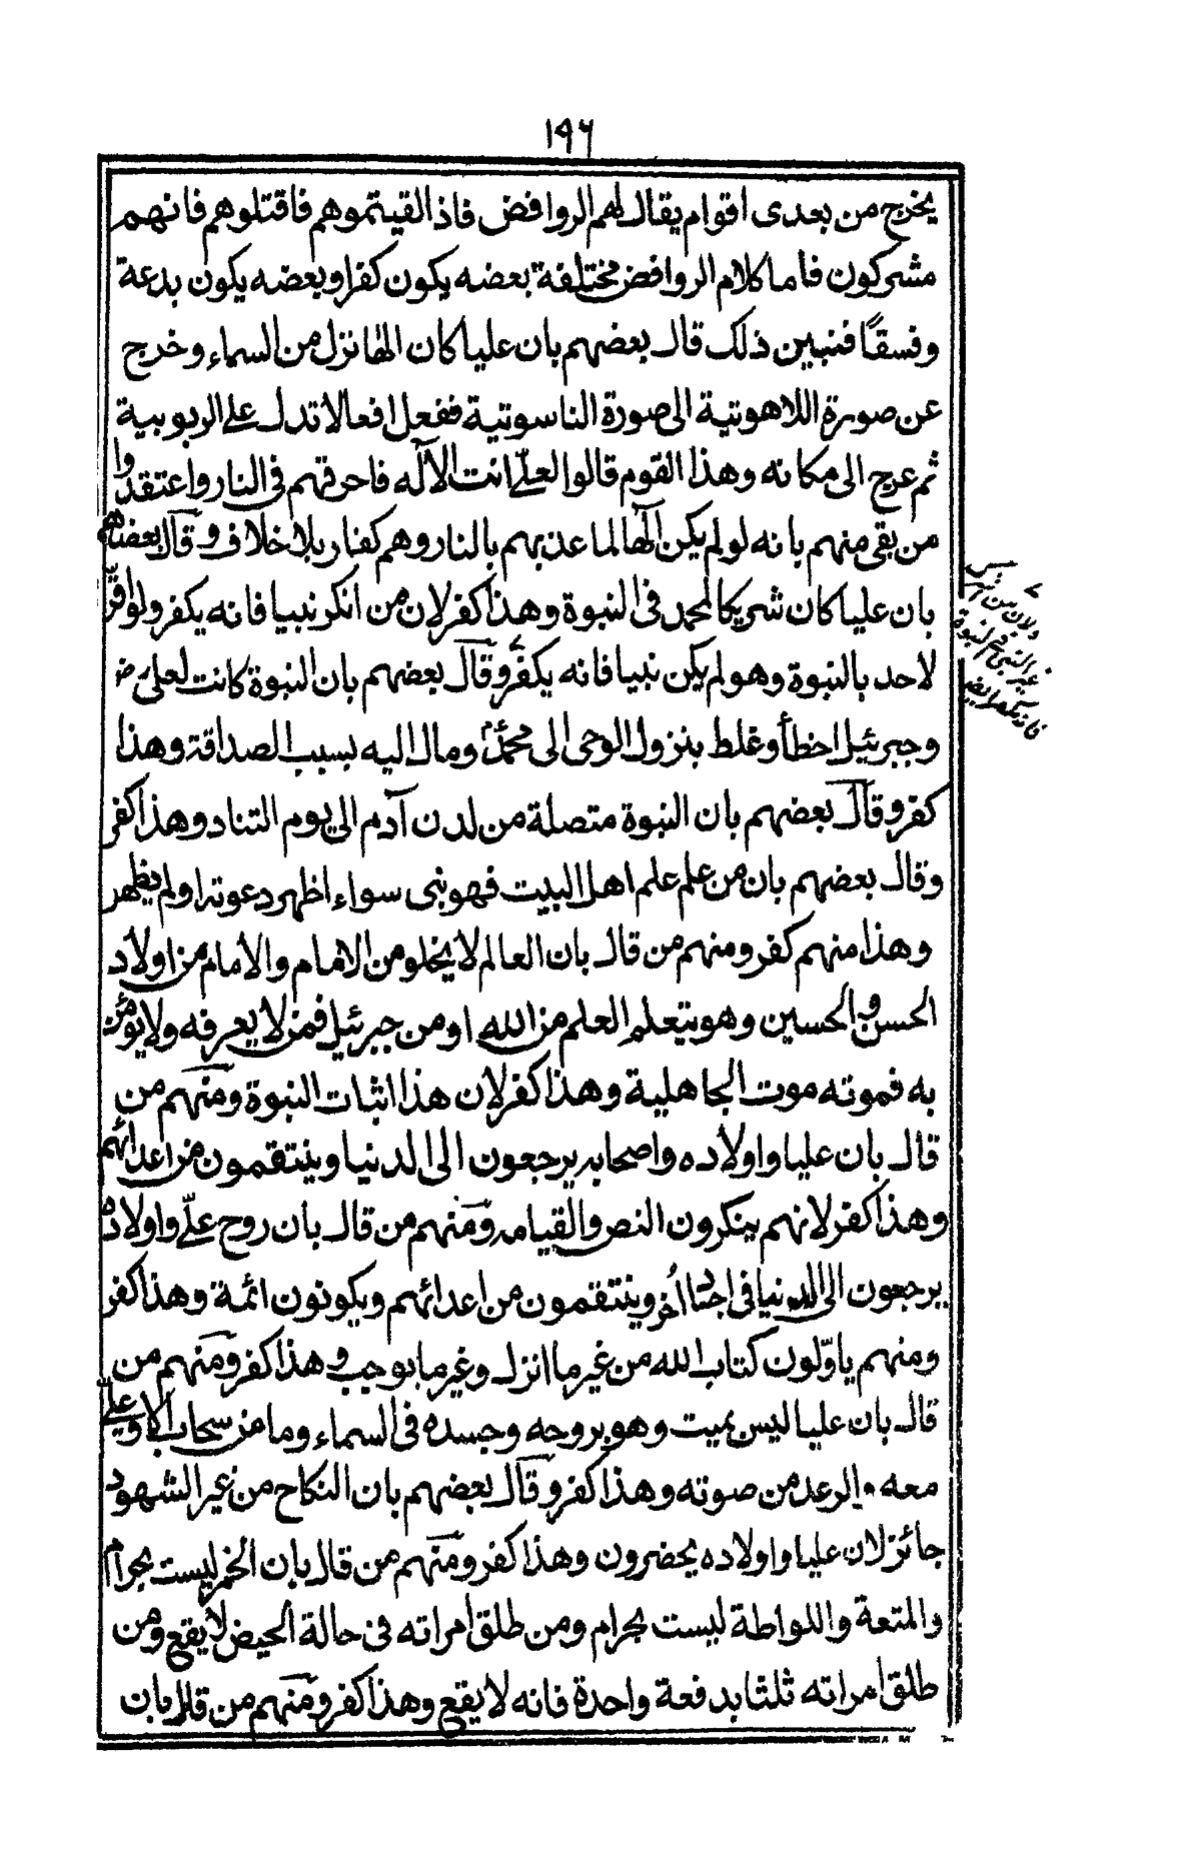 ١٩٦
يخرج من بعدى اقوام يقال لهم الروافض فاذا لقيتموهم فاقتلوهم فانهم
مشركون فاما كلام الروافض مختلفة بعضه يكون كفرا وبعضه يكون بدعة
وفسقًا فنبين ذلك قال بعضهم بان عليا كان الها نزل من السماء وخرج
عن صورة اللاهوتية الى صورة الناسوتية ففعل افعالا تدل على الربوبية
ثم عرج الى مكانه وهذا القوم قالوا لعلىّ انت الآله فاحرقهم فى النار واعتقدوا
من بقى منهم بانه لو لم يكن آلها لما عذبهم بالنار وهم كفار بلا خلاف وقال بعضهم
بان عليا كان شريكا لمحمد فى النبوة وهذا كفر لان من انكر نبيا فانه يكفر ولو اقرّ
لاحد بالنبوة وهو لم يكن نبيا فانه يكفر وقال بعضهم بان النبوة كانت لعلى رض
وجبرئيل اخطأ وغلط بنزول الوحى الى محمدؐ ومال اليه بسبب الصداقة وهذا
كفر وقال بعضهم بان النبوة متصلة من لدن آدم الى يوم التناد وهذا كفر
وقال بعضهم بان من علم علم اهل البيت فهو نبى سواء اظهر دعوته او لم يظهر
وهذا منهم كفر ومنهم من قال بان العالم لا يخلو من الامام والأمام من اولاد
الحسن والحسين وهو يتعلم العلم من الله او من جبرئيل فمن لا يعرفه ولا يؤمن
به فموته موت الجاهلية وهذا كفر لان هذا اثبات النبوة ومنهم من
قال بان عليا واولاده واصحابه يرجعون الى الدنيا وينتقمون من اعدائهم
وهذا كفر لانهم ينكرون النص والقيامه ومنهم من قال بان روح علىّ واولاده
يرجعون الى الدنيا فى اجساد اُخر وينتقمون من اعدائهم ويكونون ائمة وهذا كفر
ومنهم ياوّلون كتاب الله من غير ما انزل وغير ما يوجب وهذا كفر ومنهم من
قال بان عليا ليس بميت وهو بروحه وجسده فى السماء وما من سحاب الا وعلىّ
معه والرعد من صوته وهذا كفر وقال بعضهم بان النكاح من غير الشهود
جائز لان عليا واولاده يحضرون وهذا كفر ومنهم من قال بان الخمر ليست بحرام
والمتعة واللواطة ليست بحرام ومن طلق امراته فى حالة الحيض لا يقع ومن
طلق امراته ثلثا بدفعة واحدة فانه لا يقع وهذا كفر ومنهم من قال بان
ولان من
غير النبى فى النبوة
فانه يكفر ايض